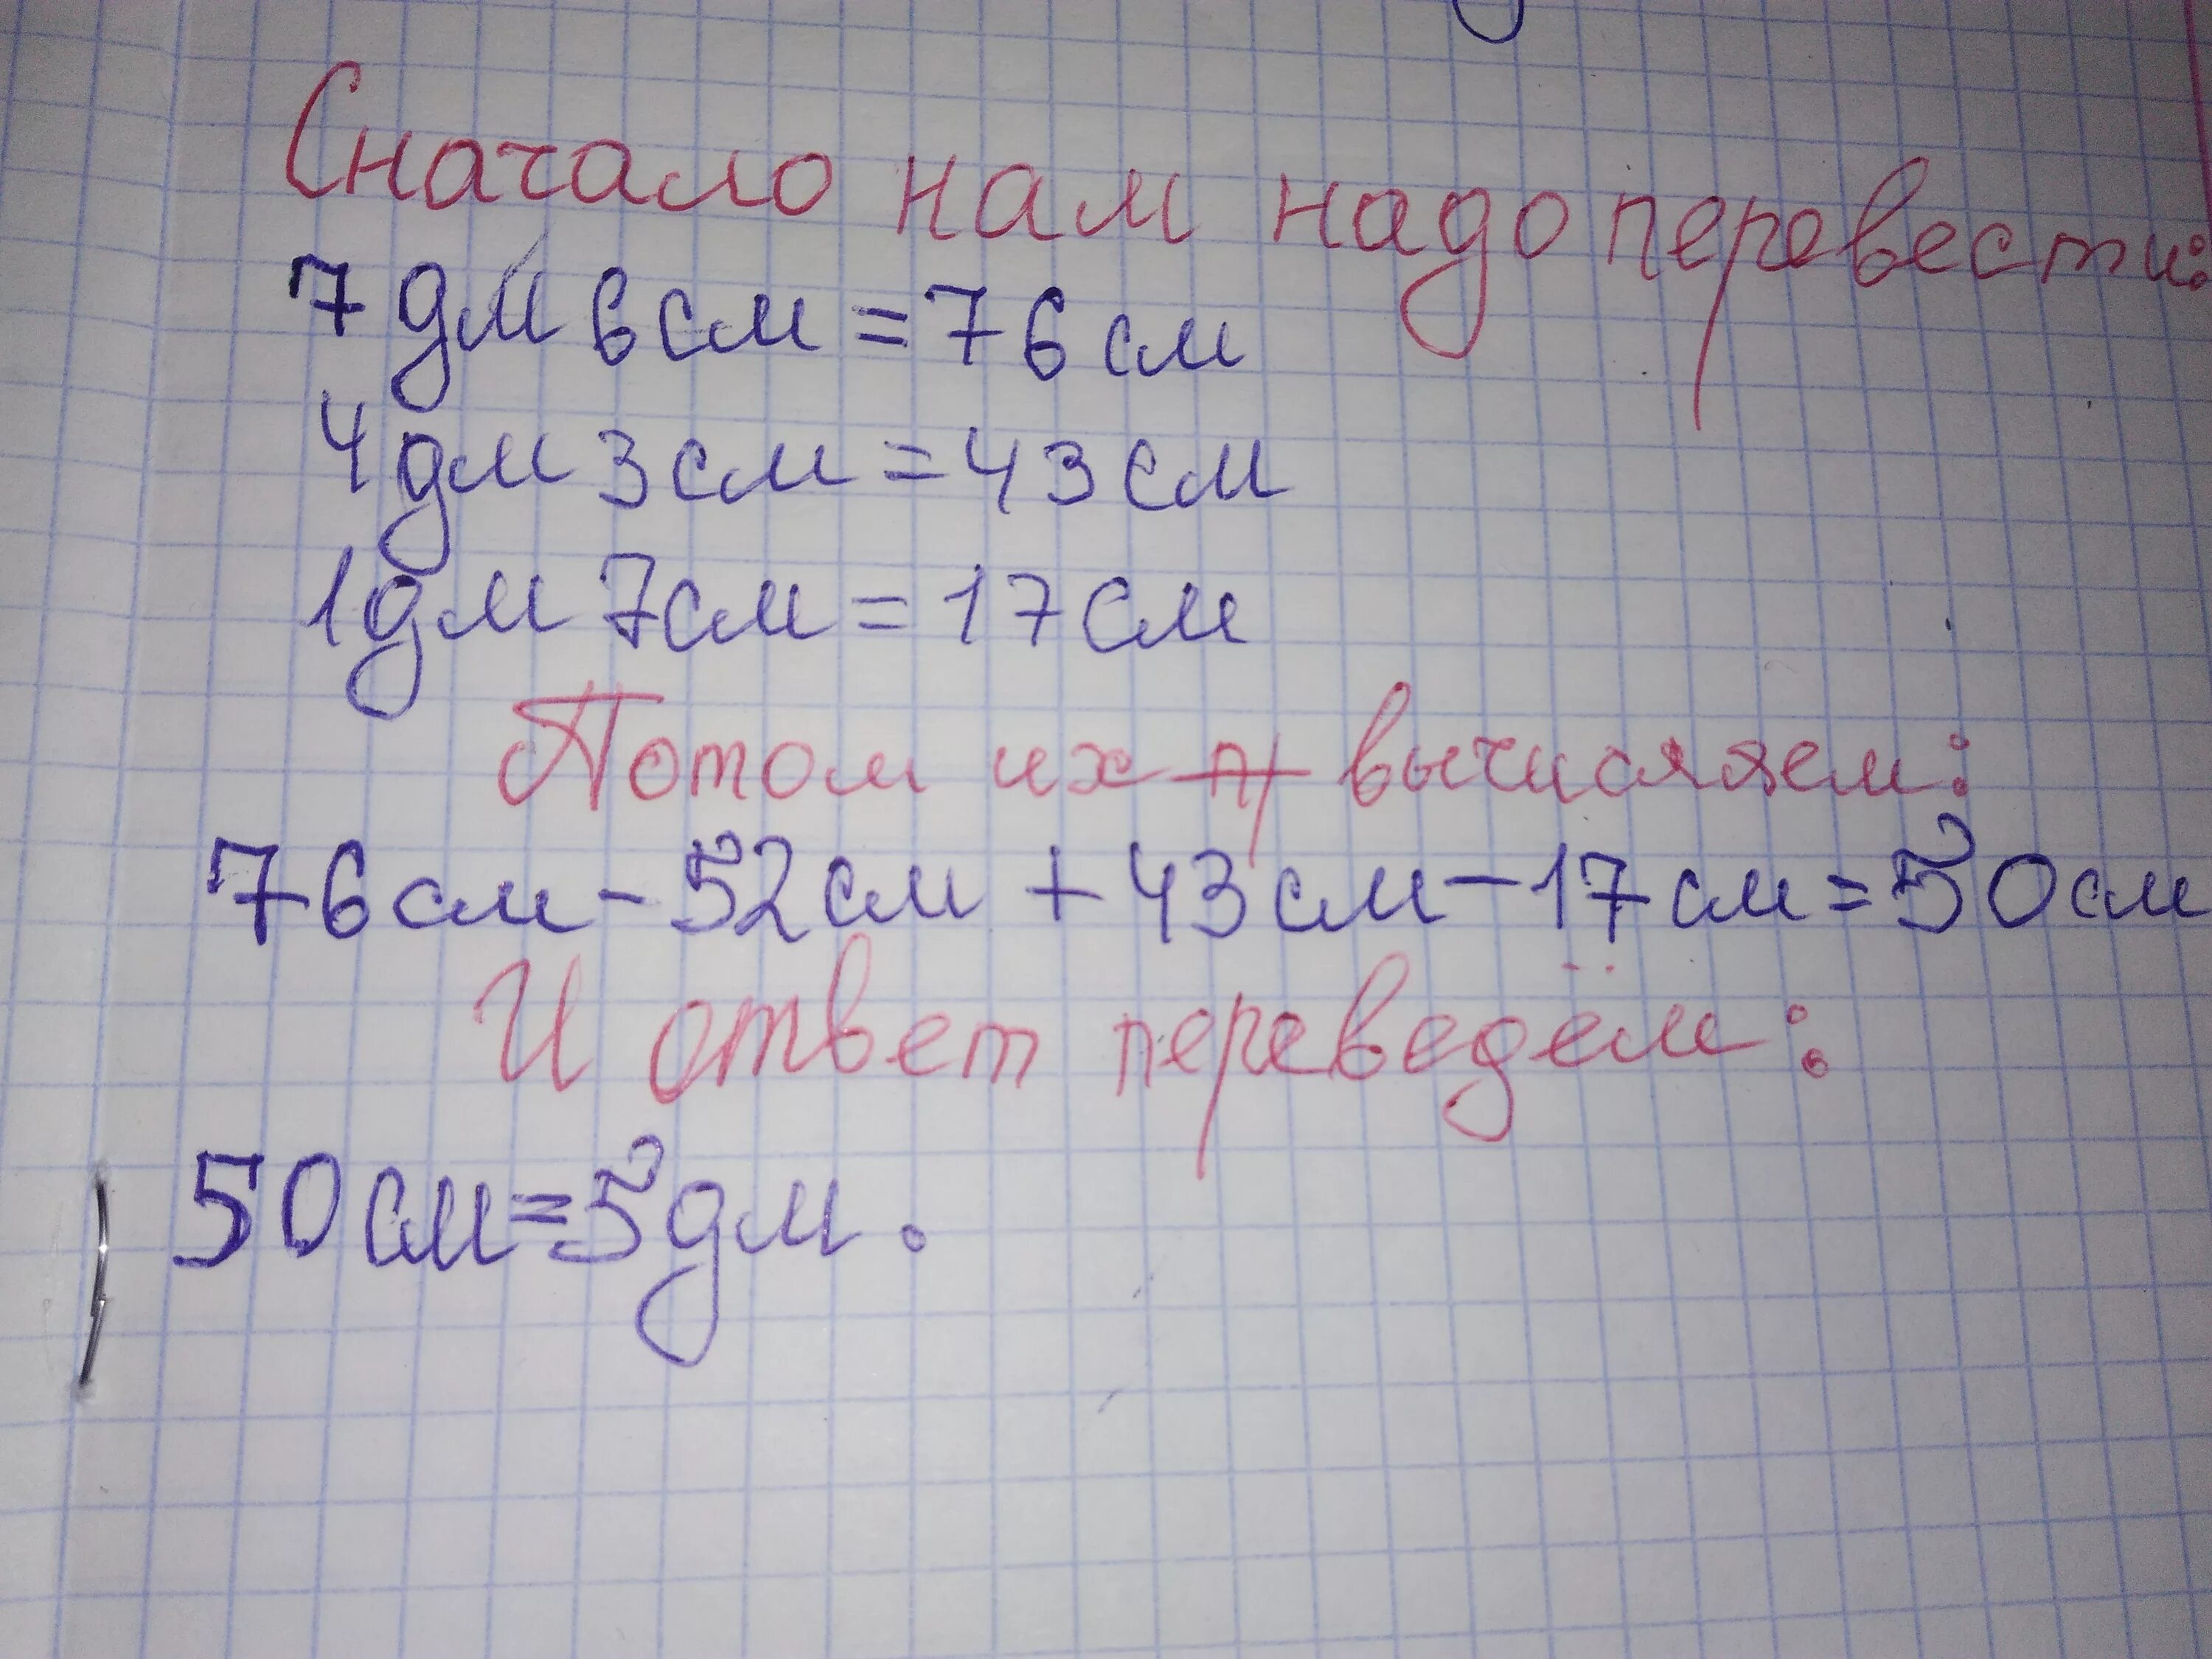 Сначало нам надо перевести:
7дм 6см=76см
4дм 3см=43см
1дм 7см=17см
Потом их вычисляем:
76см-52см+43см-17см=50см
И ответ переведём:
50см=5дм.